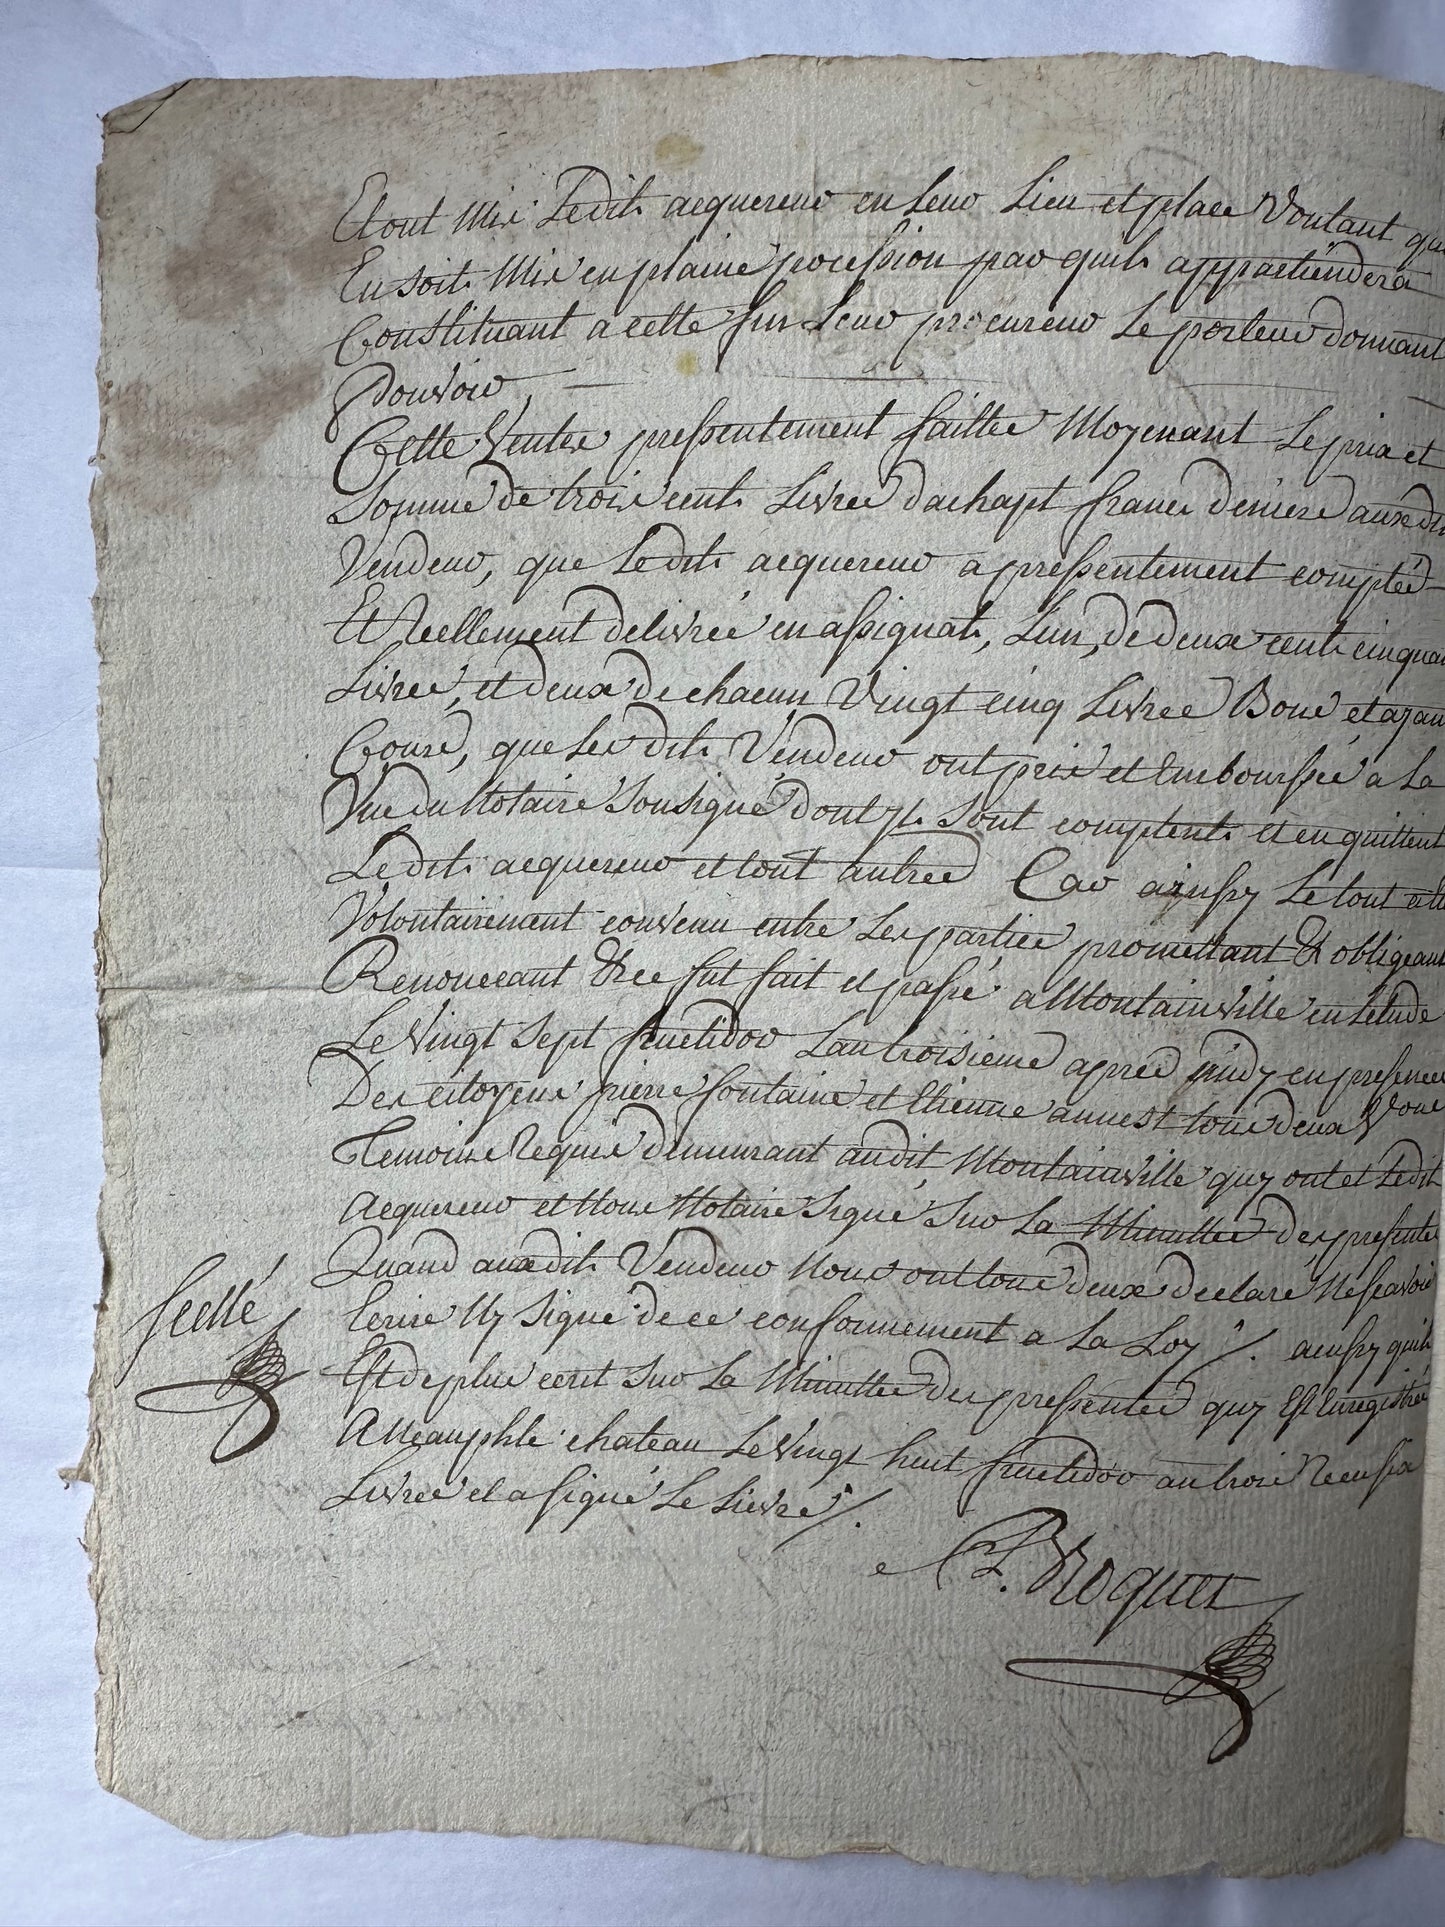 Et ont Mis Ledit acquereur en Leur Lieu et place Voulant que
En soit Mis en plaine pocession par quil appartiendera
Constituant a cette fin Leur procureur Le porteur donnant
Pouvoir
Cette Vente pressentement faitte Moyenant Le prix et
Somme de trois cent Livres dachapt francs deniers auxdit
Vendeur, que Ledit acquereur a pressentement compté
Et Reellement delivré en assignats, Lun, de deux cent cinquan
Livres, et deux de chacun Vingt cinq Livres Bons et ayan
Cours, que Lesdits Vendeur ont pris et Emboursée a La
Vue du Notaire Sousigné dont ils Sont comptent et en quittent
Ledit acquereur et tout autres Car ainssy Le tout a été
Volontairement convenu entre Les parties promettant & obligeant
Renonceant &ce fut fait et passé a Montainville en Letude
Le Vingt Sept fructidor Lan troisieme apres midy en presence
Des citoyens pierre fontaine et Etienne annest tous deux
Temoins Requis demeurant audit Montainville quy ont et Ledit
Acquereur et Nous Notaire Signé Sur La Minutte des pressente
Quand auxdits Vendeur Nous ont tous deux declaré Ne scavoir
Ecrire Ny Signé de ce conformement a La Loy /. ainssy quil
Est de plus ecrit Sur La Minuttes des pressentes quy Est Enregistrée
A Neauphle chateau Le Vingt huit fructidor an trois Recu six
Livres et a signé Le Lievre /.
scellé
P. Roquet